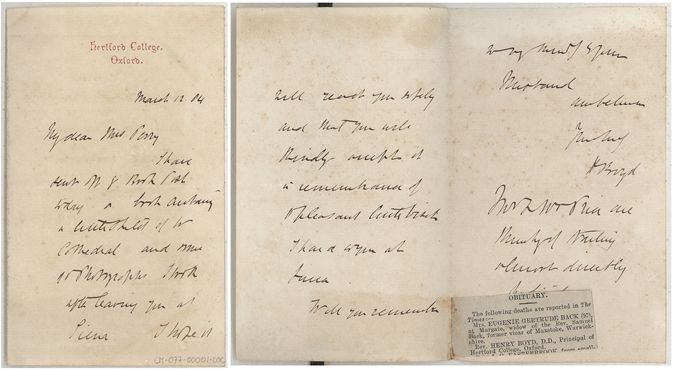 Hertford College,
Oxford.
March 12. 04
My dear Mrs Perry
I have
sent off by Book Post
today a book containing
a little sketch of
Cathedral and some
Photographs I took
after leaving you at
I hope it
will reach you safely
and that you will
kindly accept it
in remembrance of
a pleasant little visit
I had with you at
Will you remember
Husband
and believe me
H Boyd
are
thinking of starting
almost directly
OBITUARY.
The following deaths are reported in The
Times:—
Mrs. EUGENIE GERTRUDE BACK
at Margate, widow of the Rev. Samuel
Back, former vicar of Maxstoke, Warwick-
shire.
Rev. HENRY BOYD, D.D., Principal of
Hertford College, Oxford.